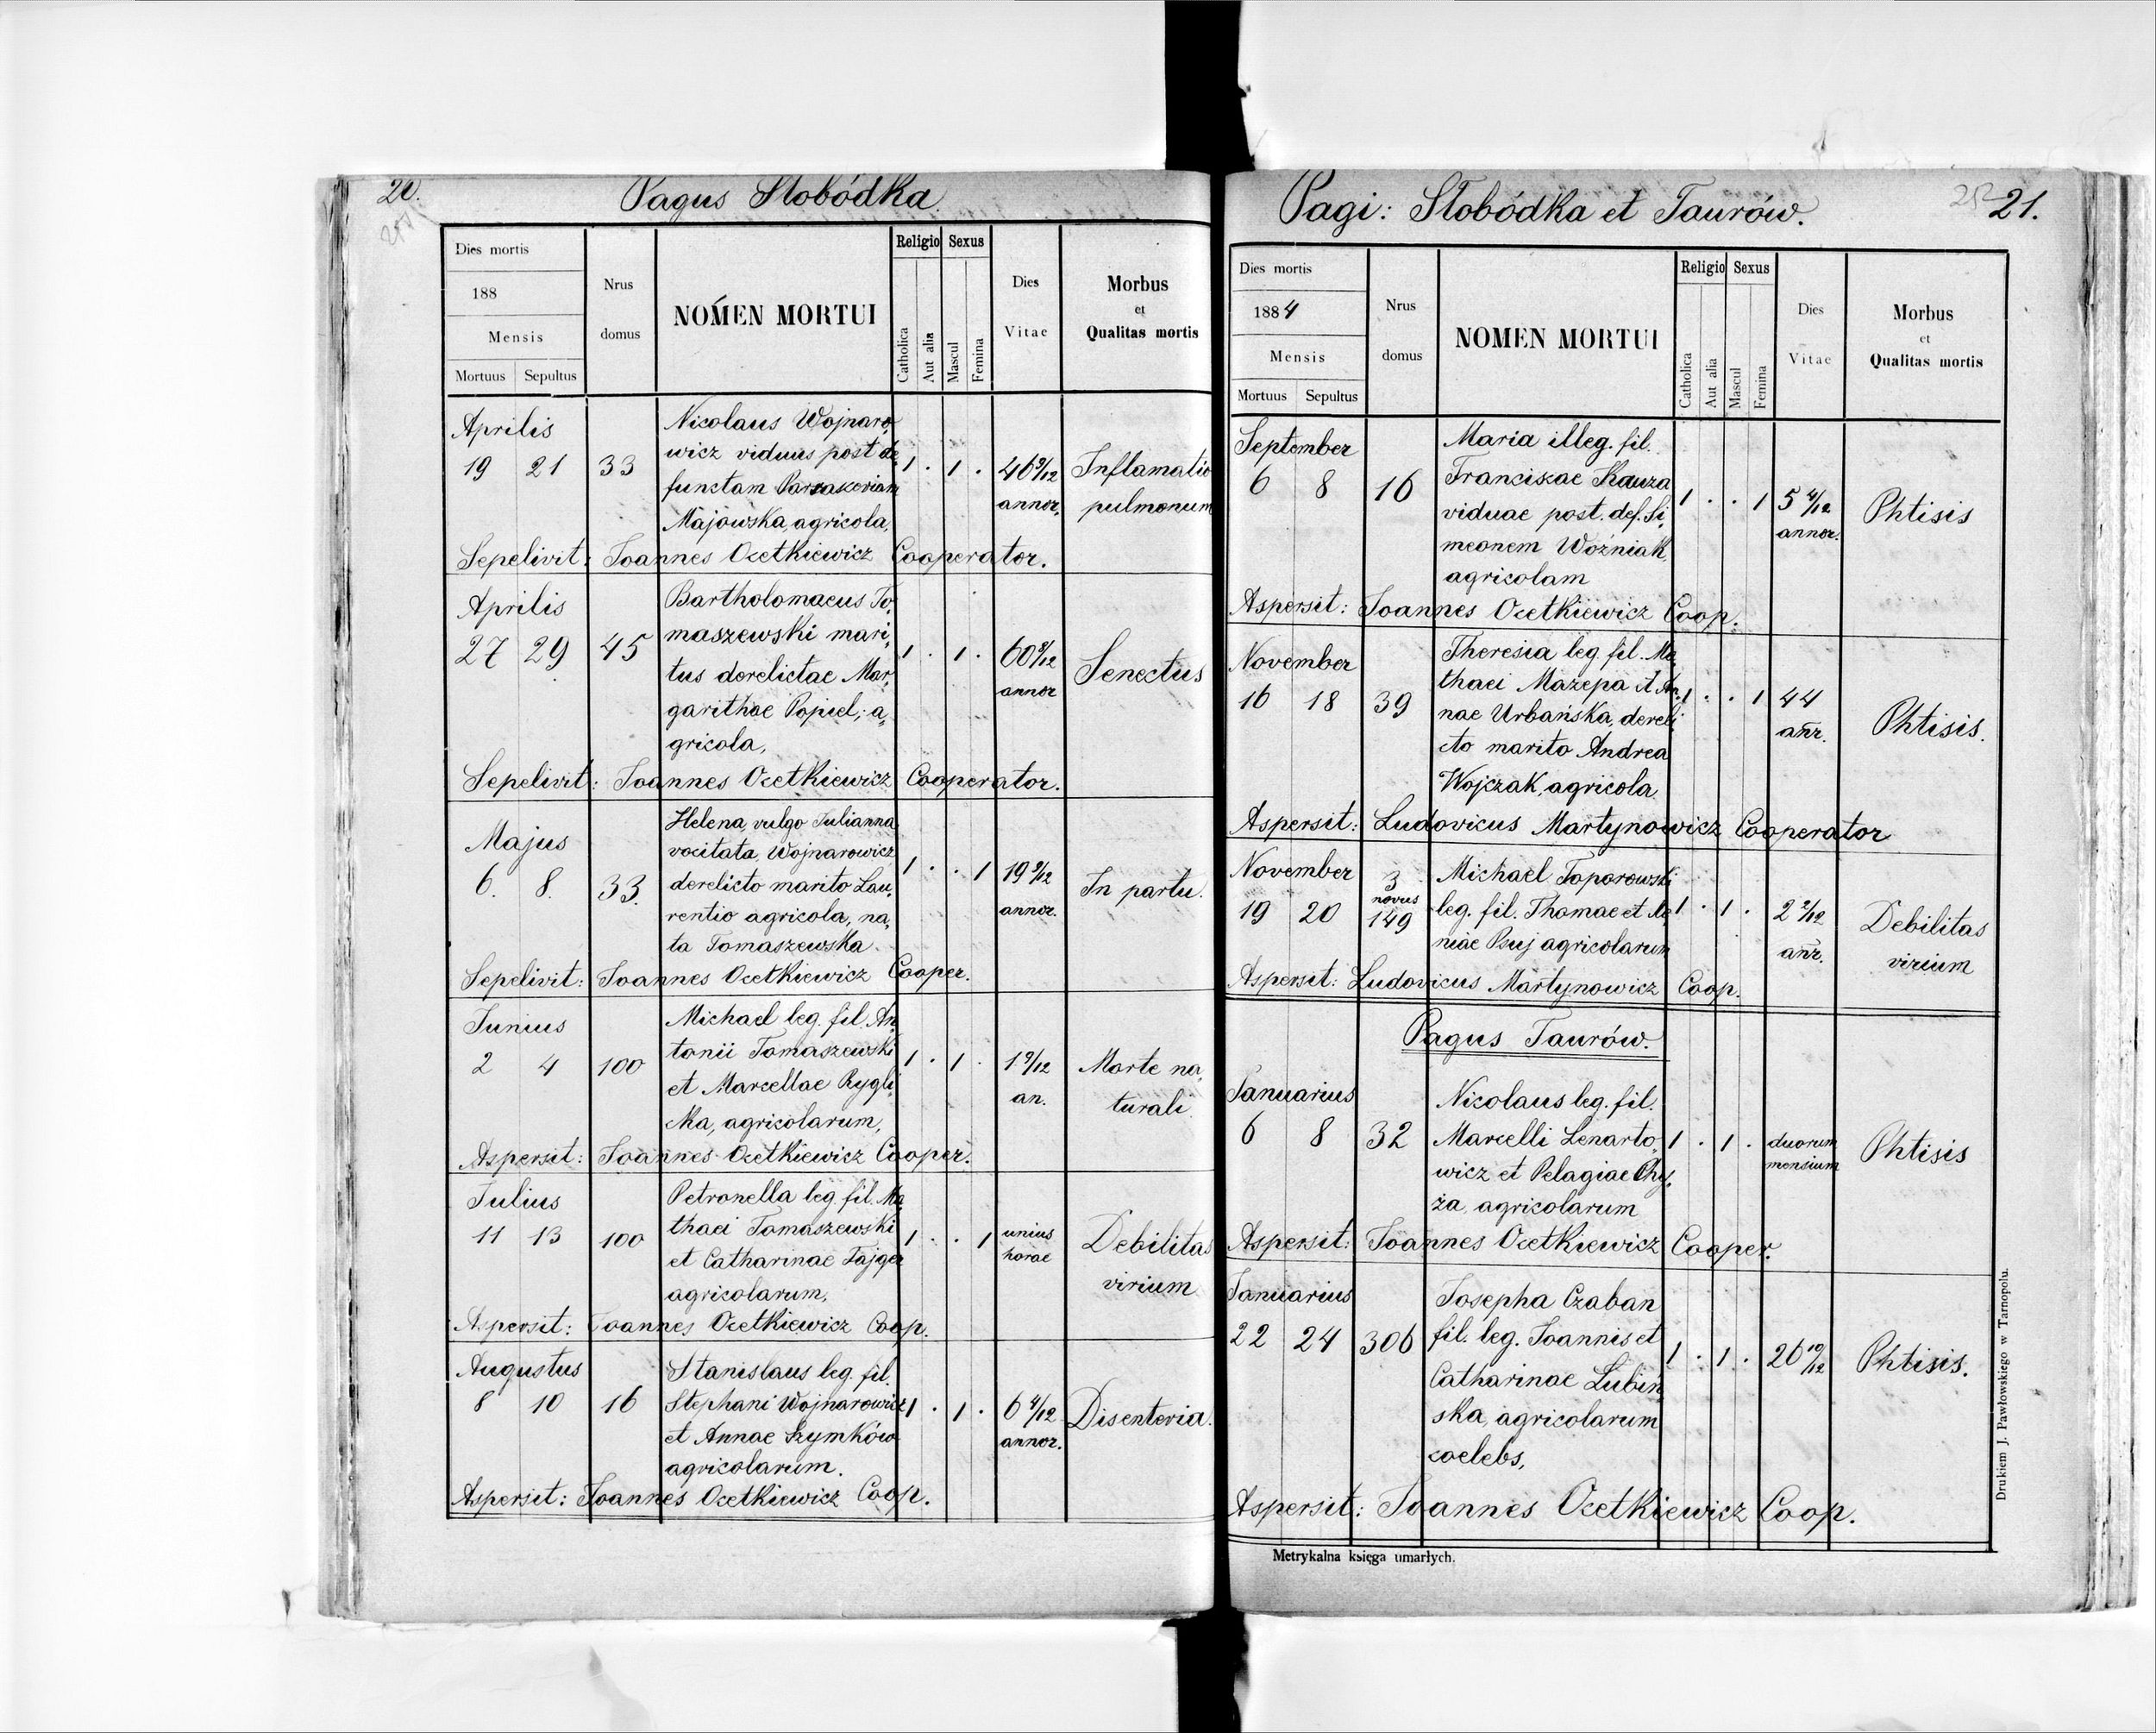 20.
Pagus Słobódka
Dies mortis
188
Mensis
Mortuus Sepultus
Nrus
domus
NOMEN MORTUI
Religio
Catholica
Aut alia
Sexus
Mascul
Femina
Dies
Vitae
Morbus
et
Qualitas mortis
Aprilis
19 21 33
Nicolaus Wojnaro,
wicz viduus post de,
functam
Majowska, agricola,
1 . 1 .
46 9/12
annor.
Inflamatio
pulmonum
Sepelivit: Joannes Ocetkiewicz Cooperator.
Aprilis
27 29 45
Bartholomaeus To,
maszewski mari,
tus derelictae Mar,
garithae Popiel, a,
gricola,
1 . 1 .
60 8/12
annor
Senectus
Sepelivit: Joannes Ocetkiewicz Cooperator.
Majus
6. 8. 33.
Helena, vulgo Julianna
vocitata, Wojnarowicz
derelicto marito Lau,
rentio agricola, na,
ta Tomaszewska.
1 . . 1
19 2/12
annor.
In partu.
Sepelivit: Joannes Ocetkiewicz Cooper.
Junius
2 4 100
Michael leg. fil. An,
tonii Tomaszewski
et Marcellae Rygli,
cka, agricolarum,
1 . 1 .
1 9/12
an.
Morte na,
turali.
Aspersit: Joannes Ocetkiewicz Cooper.
Julius
11 13 100
Petronella leg. fil. Ma,
thaei Tomaszewski
et Catharinae Fajger
agricolarum,
1 . . 1
unius
horae
Debilitas
virium
Aspersit: Joannes Ocetkiewicz Coop.
Augustus
8 10 16
Stanislaus leg. fil.
Stephani Wojnarowicz
et Annae Szymków
agricolarum.
1 . 1 .
6 4/12
annor.
Disenteria.
Aspersit: Joannes Ocetkiewicz Coop.
Pagi: Słobódka et Taurów.
252 21.
Dies mortis
1884
Mensis
Mortuus Sepultus
Nrus
domus
NOMEN MORTUI
Religio
Catholica
Aut alia
Sexus
Mascul
Femina
Dies
Vitae
Morbus
et
Qualitas mortis
September
6 8 16
Maria illeg. fil.
Franciscae Kauza
viduae post. def. Si,
meonem Woźniak,
agricolam
1 . . 1
5 4/12
annor.
Phtisis
Aspersit: Joannes Ocetkiewicz Coop.
November
16 18 39
Theresia leg. fil. Ma,
thaei Mazepa et An,
nae Urbańska, dereli,
cto marito Andrea
Wojczak, agricola.
1 . . 1
44
anr.
Phtisis.
Aspersit: Ludovicus Martynowicz Cooperator
November
19 20
3
novus
149
Michael Toporowski
leg. fil. Thomae et
niae Psuj agricolarum
1 . 1 .
2 2/12
anr.
Debilitas
virium
Aspersit: Ludovicus Martynowicz Coop.
Pagus Taurów.
Januarius
6 8 32
Nicolaus leg. fil.
Marcelli Lenarto,
wicz et Pelagiae Chy,
ża, agricolarum
1 . 1 .
duorum
mensium
Phtisis
Aspersit: Joannes Ocetkiewicz Cooper.
Januarius
22 24 306
Josepha Czaban
fil. leg. Joannis et
Catharinae Lubiń
ska, agricolarum
coelebs,
1 . 1 .
26 10/12
Phtisis.
Aspersit: Joannes Ocetkiewicz Coop.
Metrykalna księga umarłych.
Drukiem J. Pawłowskiego w Tarnopolu.